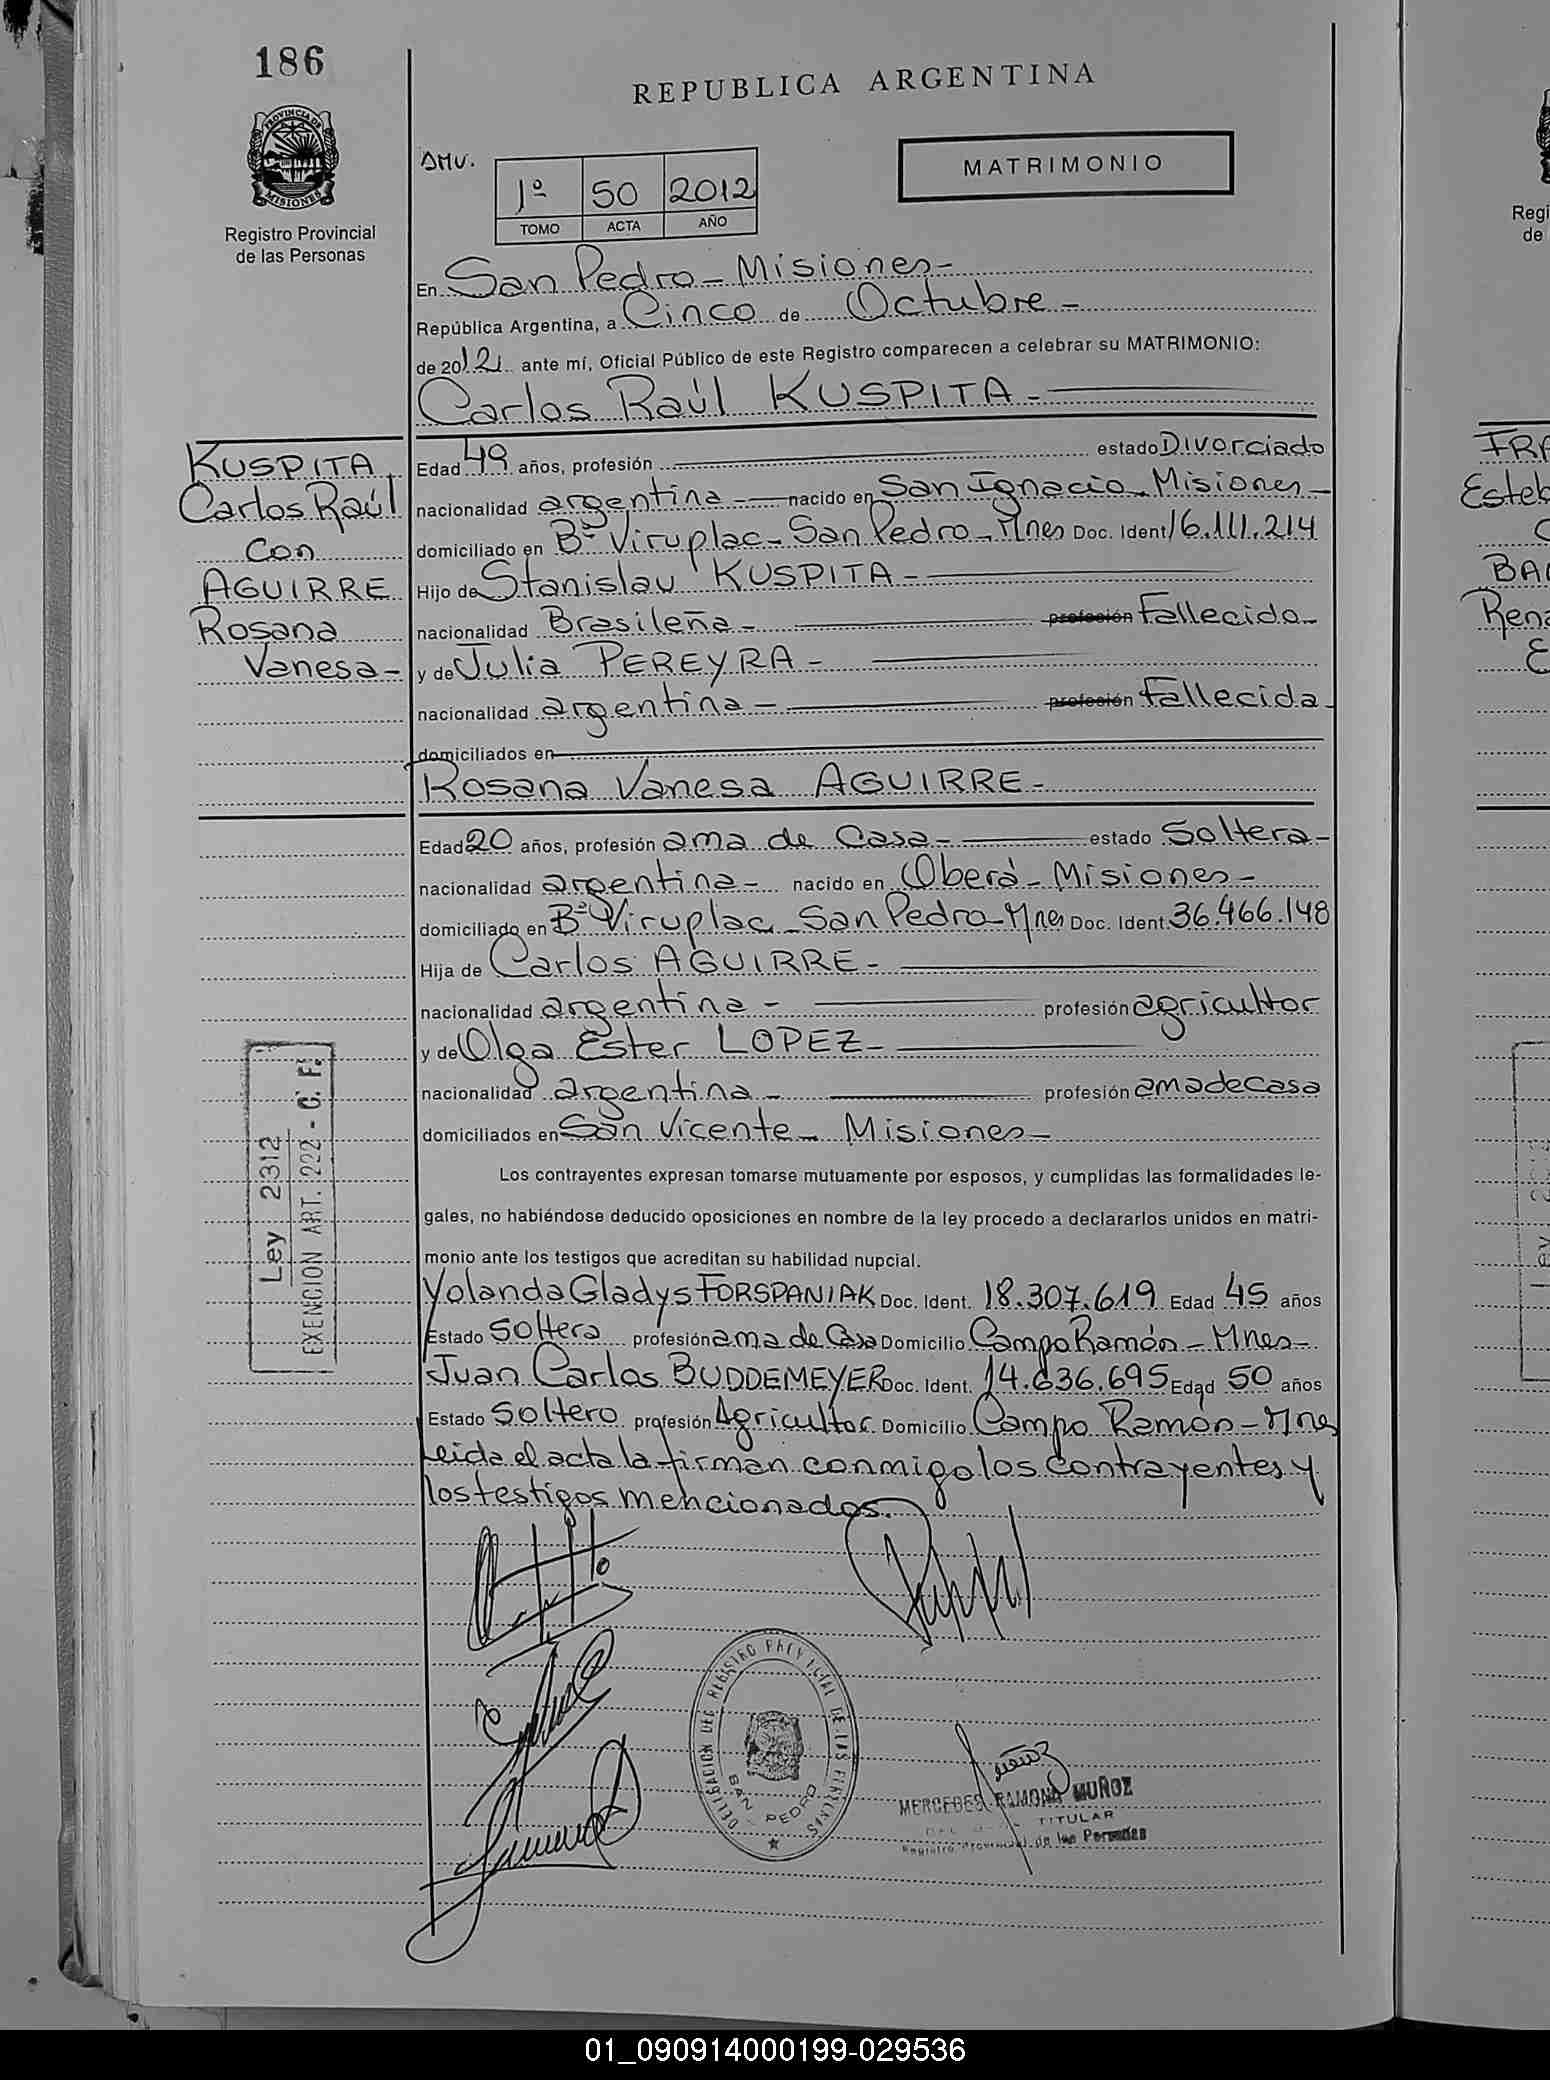 186
REPUBLICA ARGENTINA
PROVINCIA DE
MISIONES
Registro Provincial
de las Personas
DMV.
1º 50 2012
TOMO ACTA AÑO
MATRIMONIO
En San Pedro - Misiones -
República Argentina, a Cinco de Octubre -
de 2012 ante mí, Oficial Público de este Registro comparecen a celebrar su MATRIMONIO:
Carlos Raúl KUSPITA -
KUSPITA
Carlos Raúl
con
AGUIRRE
Rosana
Vanesa -
Edad 49 años, profesión estado Divorciado
nacionalidad argentina - nacido en San Ignacio - Misiones -
domiciliado en Bº Viruplac - San Pedro - Mnes Doc. Ident 16.111.214
Hijo de Stanislav KUSPITA -
nacionalidad Brasileña - profesión Fallecido -
y de Julia PEREYRA -
nacionalidad argentina - profesión Fallecida -
domiciliados en
Rosana Vanesa AGUIRRE -
Edad 20 años, profesión ama de casa - estado Soltera -
nacionalidad argentina - nacido en Oberá - Misiones -
domiciliado en Bº Viruplac - San Pedro - Mnes Doc. Ident. 36.466.148
Hija de Carlos AGUIRRE -
nacionalidad argentina - profesión agricultor
y de Olga Ester LOPEZ -
nacionalidad argentina - profesión ama de casa
domiciliados en San Vicente - Misiones -
Ley 2312
EXENCION ART. 222 - C. F.
Los contrayentes expresan tomarse mutuamente por esposos, y cumplidas las formalidades le-
gales, no habiéndose deducido oposiciones en nombre de la ley procedo a declararlos unidos en matri-
monio ante los testigos que acreditan su habilidad nupcial.
Yolanda Gladys FORSPANIAK Doc. Ident. 18.307.619 Edad 45 años
Estado Soltera profesión ama de Casa Domicilio Campo Ramón - Mnes -
Juan Carlos BUDDEMEYER Doc. Ident. 14.636.695 Edad 50 años
Estado Soltero profesión Agricultor Domicilio Campo Ramón - Mnes
Leida el acta la firman conmigo los contrayentes y
los testigos mencionados.
DELEGACION DEL REGISTRO PROVINCIAL DE LAS PERSONAS
SAN PEDRO
Muñoz
MERCEDES RAMONA MUÑOZ
TITULAR
Registro Provincial de las Personas
Regi
de
FRA
Esteb
BA
Rena
01_090914000199-029536